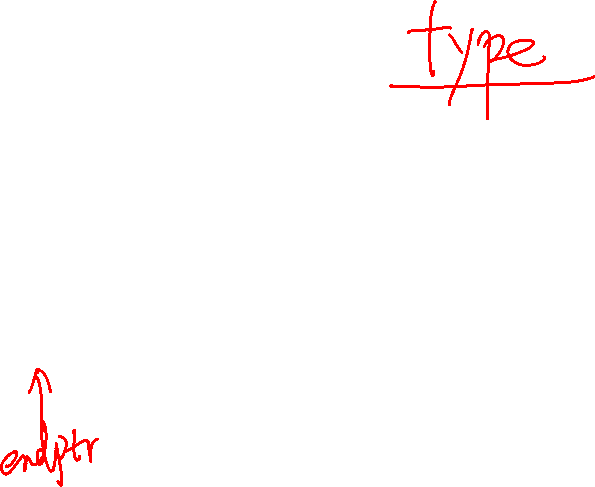 type
endptr